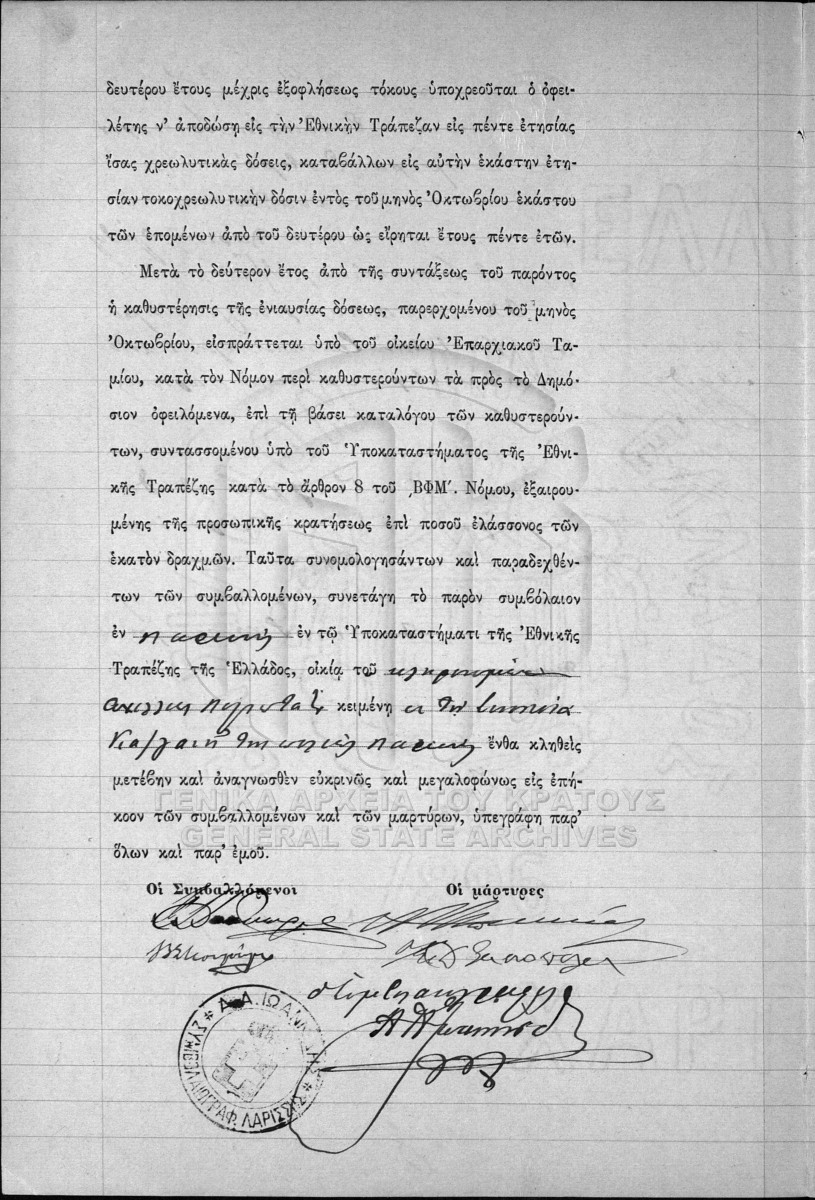 δευτέρου ἔτους μέχρις ἐξοφλήσεως τόκους ὑποχρεοῦται ὁ ὀφει-
λέτης ν’ ἀποδώσῃ εἰς τὴν Ἐθνικὴν Τράπεζαν εἰς πέντε ἐτησίας
ἴσας χρεωλυτικὰς δόσεις, καταβάλλων εἰς αὐτὴν ἑκάστην ἐτη-
σίαν τοκοχρεωλυτικὴν δόσιν ἐντὸς τοῦ μηνὸς Ὀκτωβρίου ἑκάστου
τῶν ἑπομένων ἀπὸ τοῦ δευτέρου ὡς εἴρηται ἔτους πέντε ἐτῶν.
Μετὰ τὸ δεύτερον ἔτος ἀπὸ τῆς συντάξεως τοῦ παρόντος
ἡ καθυστέρησις τῆς ἐνιαυσίας δόσεως, παρερχομένου τοῦ μηνὸς
Ὀκτωβρίου, εἰσπράττεται ὑπὸ τοῦ οἰκείου Ἐπαρχιακοῦ Τα-
μίου, κατὰ τὸν Νόμον περὶ καθυστερούντων τὰ πρὸς τὸ Δημό-
σιον ὀφειλόμενα, ἐπὶ τῇ βάσει καταλόγου τῶν καθυστερούν-
των, συντασσομένου ὑπὸ τοῦ Ὑποκαταστήματος τῆς Ἐθνι-
κῆς Τραπέζης κατὰ τὸ ἄρθρον 8 τοῦ ͵ΒΦΜ′. Νόμου, ἐξαιρου-
μένης τῆς προσωπικῆς κρατήσεως ἐπὶ ποσοῦ ἐλάσσονος τῶν
ἑκατὸν δραχμῶν. Ταῦτα συνομολογησάντων καὶ παραδεχθέν-
των τῶν συμβαλλομένων, συνετάγη τὸ παρὸν συμβόλαιον
ἐν ἐν τῷ Ὑποκαταστήματι τῆς Ἐθνικῆς
Τραπέζης τῆς Ἑλλάδος, οἰκίᾳ τοῦ κληρονόμων
κειμένῃ
ἔνθα κληθεὶς
μετέβην καὶ ἀναγνωσθὲν εὐκρινῶς καὶ μεγαλοφώνως εἰς ἐπή-
κοον τῶν συμβαλλομένων καὶ τῶν μαρτύρων, ὑπεγράφη παρ’
ὅλων καὶ παρ’ ἐμοῦ.
ΓΕΝΙΚΑ ΑΡΧΕΙΑ ΤΟΥ ΚΡΑΤΟΥΣ
GENERAL STATE ARCHIVES
Οἱ Συμβαλλόμενοι Οἱ μάρτυρες
ΣΥΜΒΟΛΑΙΟΓΡΑΦ. ΛΑΡΙΣΣΗΣ